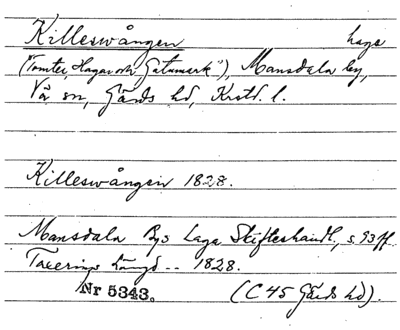 Killeswången haga
(Tomter, Hagar och "Gatumark"), Mansdala by,
Vä sn, Gärds hd, Krstd. l.
Killeswången 1828.
Mansdala Bys Laga Skifteshandl., s. 93 ff.
Taxerings Längd -- 1828.
Nr 5343. (C 45 Gärds hd).